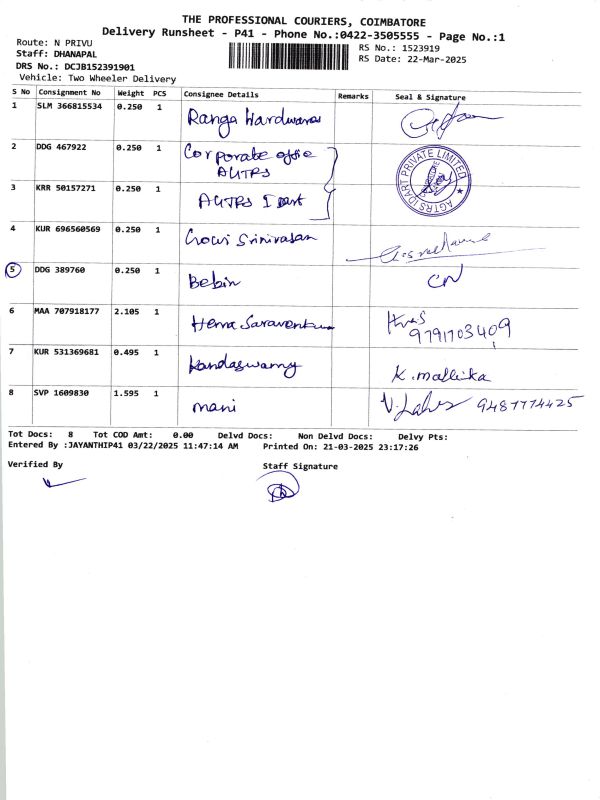 THE PROFESSIONAL COURIERS, COIMBATORE
Delivery Runsheet - P41 - Phone No.:0422-3505555 - Page No.:1
Route: N PRIVU
Staff: DHANAPAL
DRS No.: DCJB152391901
Vehicle: Two Wheeler Delivery
RS No.: 1523919
RS Date: 22-Mar-2025
S No Consignment No Weight PCS Consignee Details Remarks Seal & Signature
1 SLM 366815534 0.250 1 Ranga Hardwares
2 DDG 467922 0.250 1 Corporate offie
AGTRS
AGTRS IDART PRIVATE LIMITED
3 KRR 50157271 0.250 1 AGTRS I Dart
4 KUR 696560569 0.250 1 Srinivasan
5 DDG 389760 0.250 1 Bebin CN
6 MAA 707918177 2.105 1 Hema
9791703409
7 KUR 531369681 0.495 1 Kandaswamy K. mallika
8 SVP 1609830 1.595 1 mani 9487774425
Tot Docs: 8 Tot COD Amt: 0.00 Delvd Docs: Non Delvd Docs: Delvy Pts:
Entered By :JAYANTHIP41 03/22/2025 11:47:14 AM Printed On: 21-03-2025 23:17:26
Verified By Staff Signature